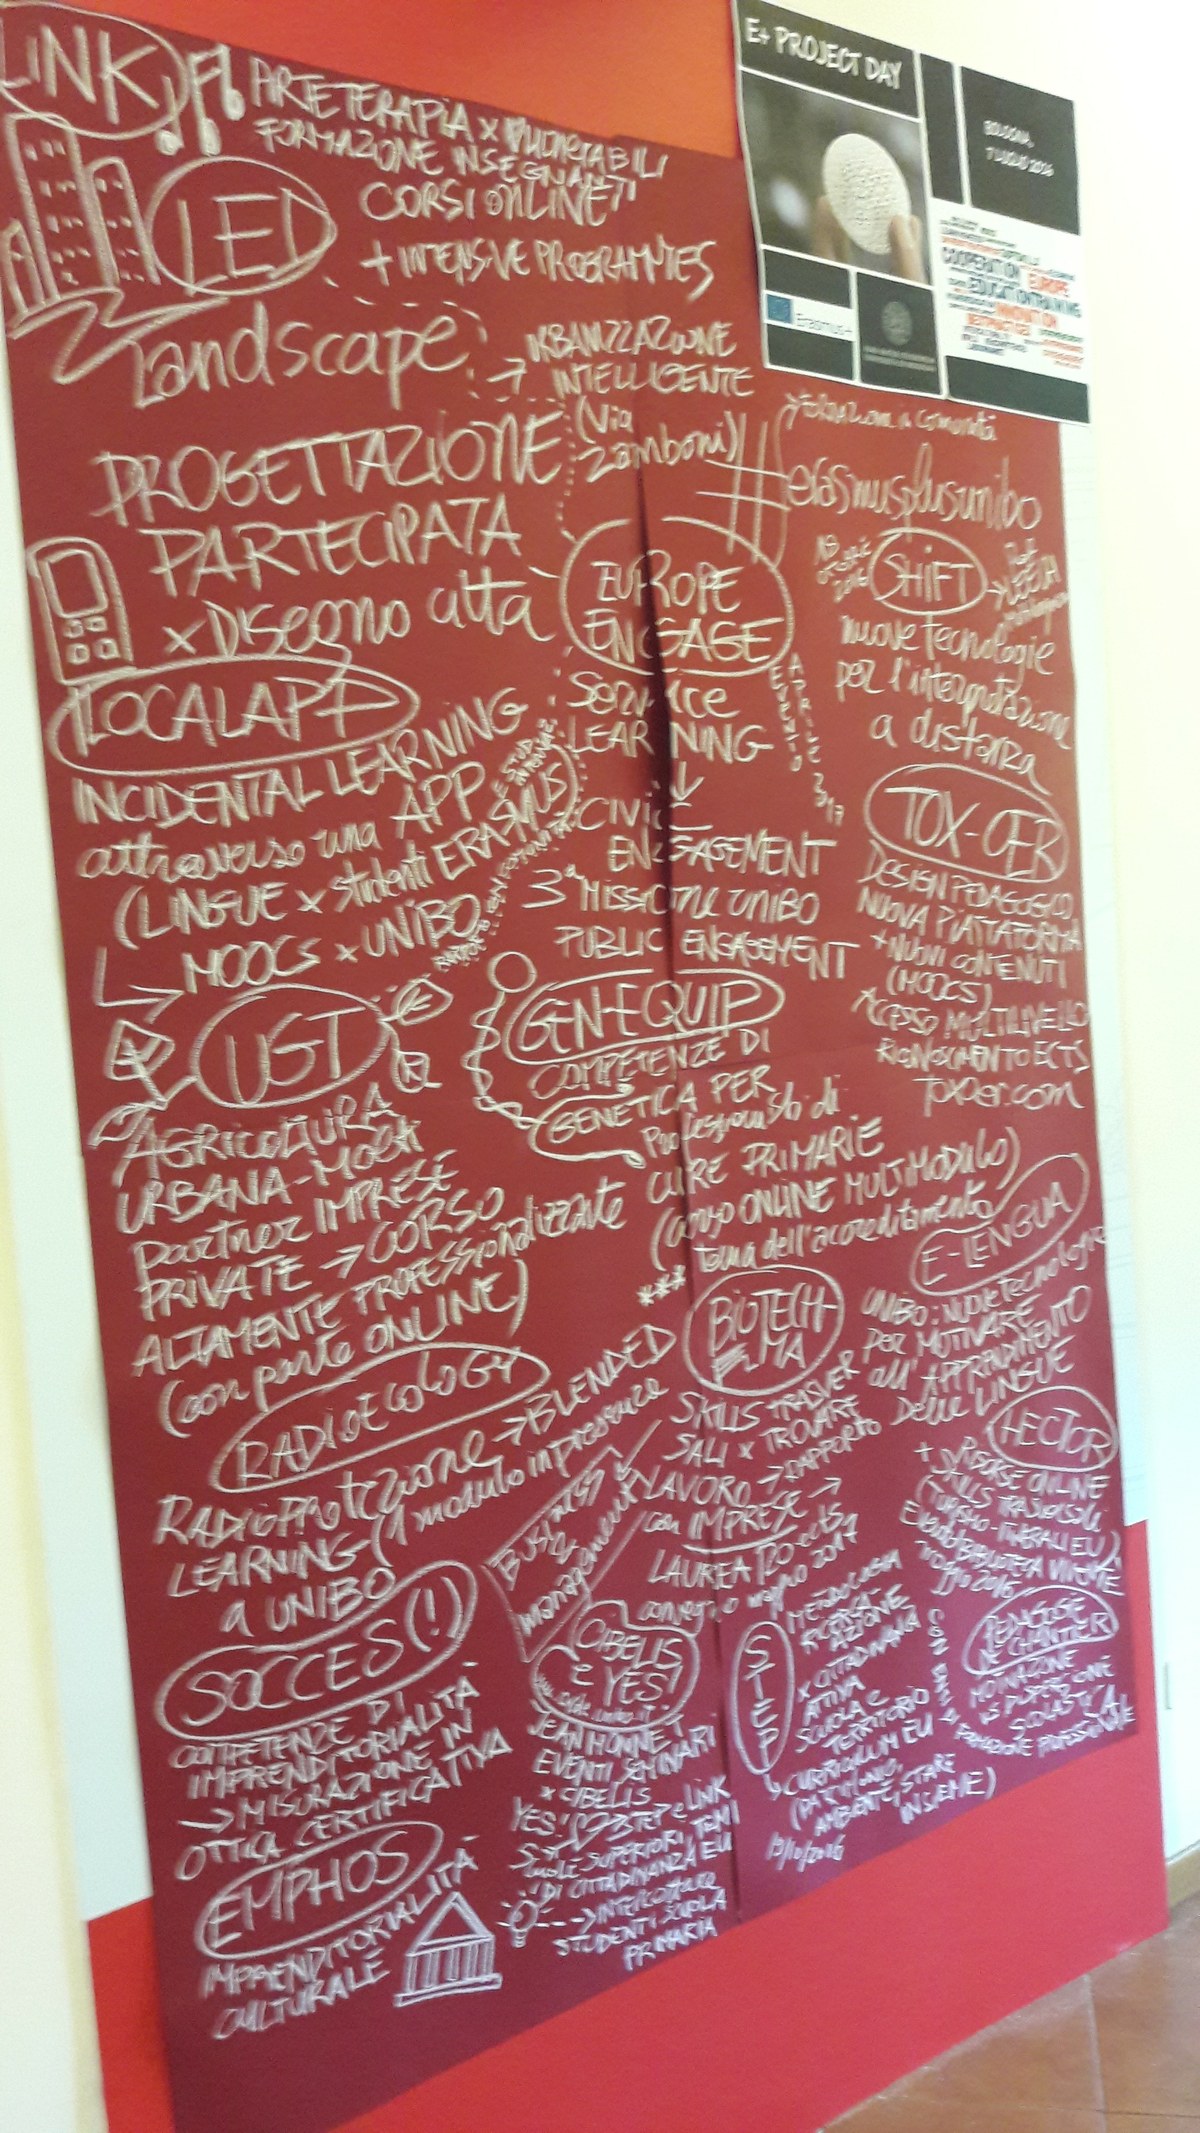 LINK
ARTETERAPIA x VULNERABILI
FORMAZIONE INSEGNANTI
LED
CORSI ONLINE
+ INTENSIVE PROGRAMMES
Landscape
→ URBANIZZAZIONE
INTELLIGENTE
(Via
Zamboni)
PROGETTAZIONE
PARTECIPATA
x DISEGNO città
LOCALAPP
INCIDENTAL LEARNING
attraverso una APP
(LINGUE x studenti ERASMUS
MOOCS x UNIBO
UGT
AGRICOLTURA
URBANA - MOLTI
partner IMPRESE
PRIVATE → CORSO
ALTAMENTE PROFESSIONALIZZANTE
(con parte ONLINE)
RADIOECOLOGY
RADIOPROTEZIONE → BLENDED
LEARNING - (1 modulo in presenza
a UNIBO
SOCCES (!)
COMPETENZE DI
IMPRENDITORIALITÀ
→ MISURAZIONE IN
OTTICA CERTIFICATIVA
EMPHOS
IMPRENDITORIALITÀ
CULTURALE
EUROPE
ENGAGE
Service
LEARNING
CIVIC
ENGAGEMENT
3ª MISSIONE UNIBO
PUBLIC ENGAGEMENT
EVENTO
APRILE 2017
GEN-EQUIP
COMPETENZE DI
GENETICA PER
Professionisti di
CURE PRIMARIE
(corso ONLINE MULTIMODULO)
tema dell'accreditamento
***
BIOTECH-
MA
SKILLS TRASVER
SALI x TROVARE
LAVORO → RAPPORTO
con IMPRESE →
LAUREA 120 ects
convegno maggio 2017
Business
management
CIBELIS
e YES!
JEAN MONNET
EVENTI SEMINARI
x CIBELIS
YES! STEP e LINK
SCUOLE SUPERIORI TEMI
DI CITTADINANZA EU
--→ INTERCULTURA
STUDENTI SCUOLA
PRIMARIA
E+ PROJECT DAY
BOLOGNA,
7 LUGLIO 2016
COOPERATION
EUROPE
EDUCATION TRAINING
INNOVATION
Erasmus+
#erasmusplusunibo
SHIFT
nuove tecnologie
per l'interpretazione
a distanza
TOX-OER
DESIGN PEDAGOGICO
NUOVA PIATTAFORMA
+ NUOVI CONTENUTI
(MOOCS)
ACCESSO MULTILIVELLO
RICONOSCIMENTO ECTS
toxoer.com
E-LENGUA
UNIBO: NUOVE tecnologie
per MOTIVARE
all'APPRENDIMENTO
delle LINGUE
LECTOR
+ RISORSE ON-LINE
+ SKILLS TRASVERSALI
Evento BIBLIOTECA VIVENTE
maggio 2016
STEP
METODOLOGIA
RICERCA-
AZIONE
x CITTADINANZA
ATTIVA
SCUOLA e
TERRITORIO
CURRICULUM EU
AMBIENTE, STARE
INSIEME)
19/10/2016
PEDAGOGIE
DE CHANTIER
MOTIVAZIONE
vs DISPERSIONE
SCOLASTICA
CON ENTI DI FORMAZIONE PROFESSIONALE